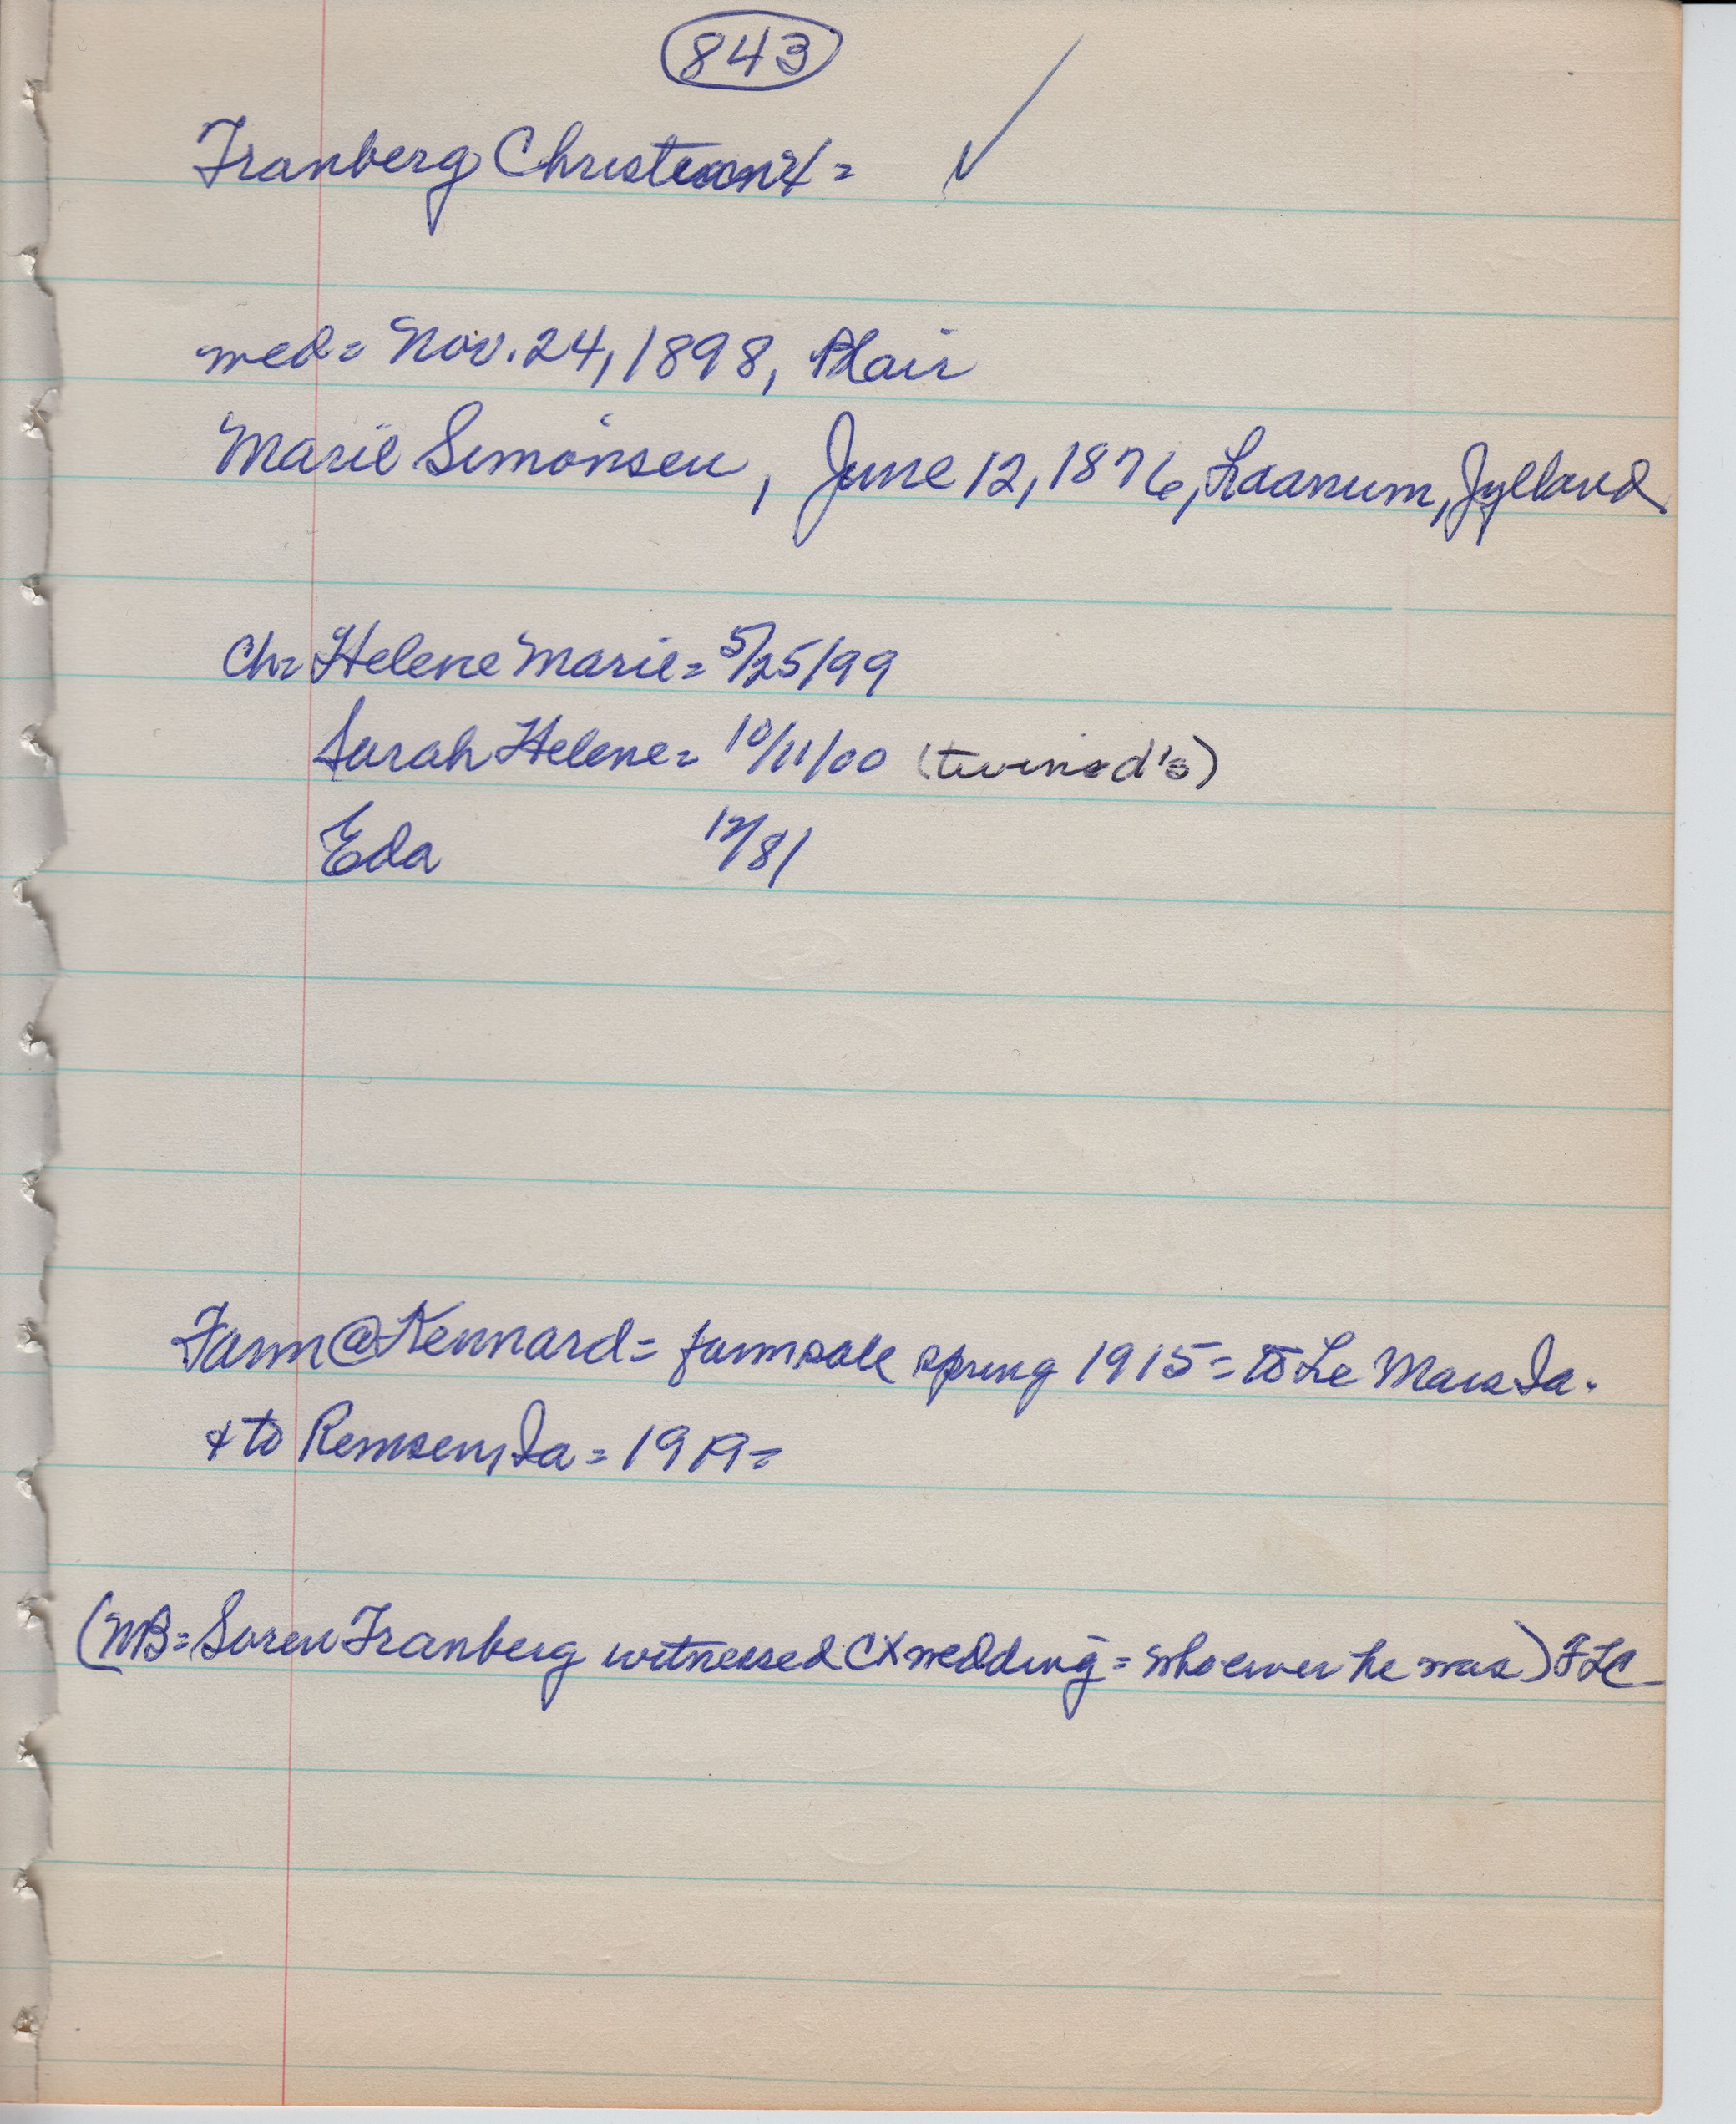 843
Franberg Christian =
wed = Nov. 24, 1898, Blair
Marie Simonsen, June 12, 1876, Laanum, Jylland
Ch = Helene Marie = 5/25/99
Sarah Helene = 10/11/00 (twin d's)
Eda 12/81
Farm @ Kennard = farm sale spring 1915 = to Le Mars Ia.
& to Remsen, Ia = 1919 =
(NB = Soren Franberg witnessed CX wedding = whoever he was) FLC